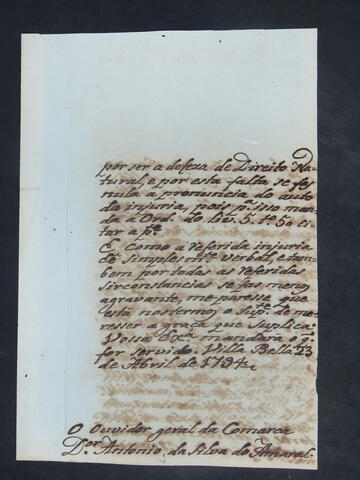 por ser a defeza de Direito Na-
tural, e por esta falta se fes
nula a pronuncia do auto
da injuria, pois p.ª isso man-
da a Ord. do liv. 5. tº 5o ci-
tar a p.e
E como a referida injuria
é simplesm.te verbal, e tam-
bem por todas as referidas
sirconstancias se fas menos
agravante, me paresse que
está nos termos o sup.e de me-
resser a graça que suplica.
Vossa Ex.ª mandara o q.
for servido. Villa Bella 23
de Abril de 1794
O Ouvidor geral da Comarca
D.or Antonio da Silva do Amaral